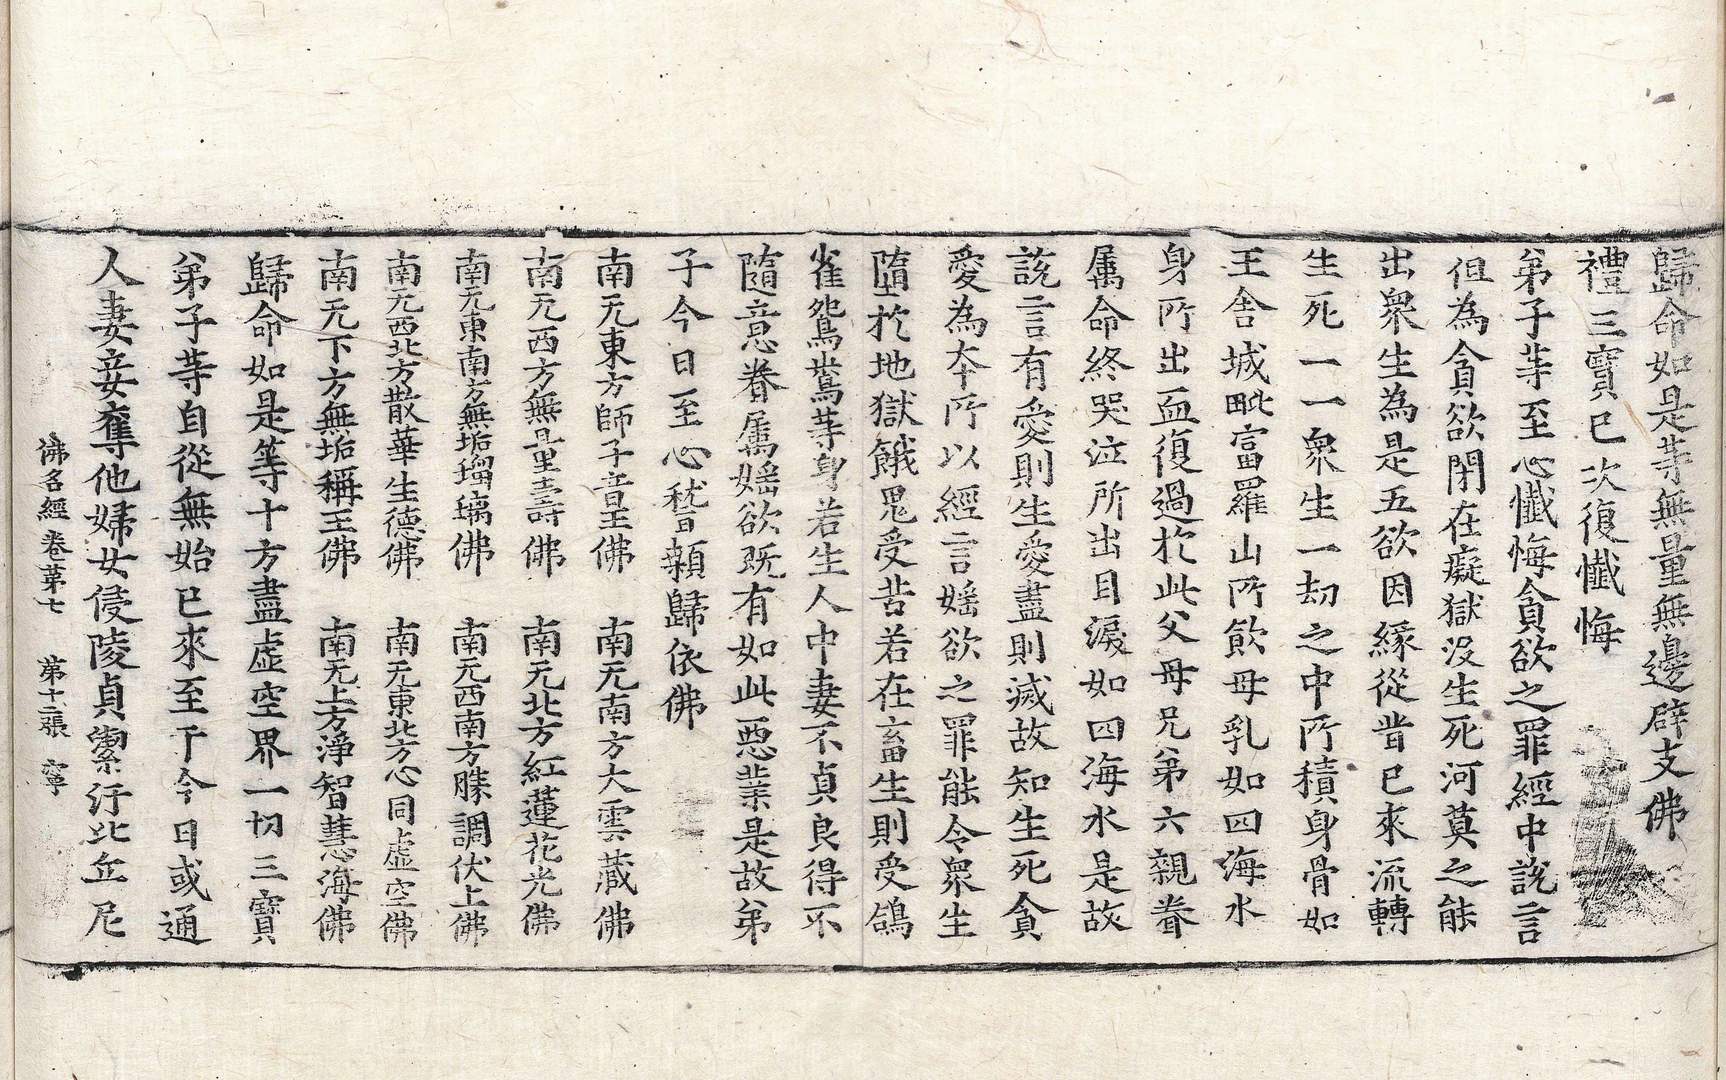 歸命如是䓁無量無邊辟支佛
禮三寶已次復懺悔
弟子䓁至心懺悔貪欲之罪經中說言
但為貪欲閉在癡獄没生死河莫之能
出衆生為是五欲因緣從昔已來流轉
生死一一衆生一劫之中所積身骨如
王舍城毗富羅山所飲母乳如四海水
身所出血復過於此父母兄弟六親眷
属命終哭泣所出目淚如四海水是故
說言有愛則生愛盡則滅故知生死貪
愛為本所以經言婬欲之罪能令衆生
墮於地獄餓鬼受苦若在畜生則受鴿
雀鴛鴦䓁身若生人中妻不貞良得不
隨意眷属婬欲旣有如此惡業是故弟
子今日至心嵇顙歸依佛
南无東方師子音王佛　南无南方大雲藏佛
南无西方無量壽佛　南无北方紅蓮花光佛
南无東南方無垢瑠璃佛　南无西南方勝調伏上佛
南无西北方散華生德佛　南无東北方心同虛空佛
南无下方無垢稱王佛　南无上方淨智慧海佛
歸命如是等十方盡虛空界一切三寶
弟子䓁自從無始已來至于今日或通
人妻妾奪他婦女侵陵貞潔汙比丘尼
佛名經卷第七　第十二張　寧